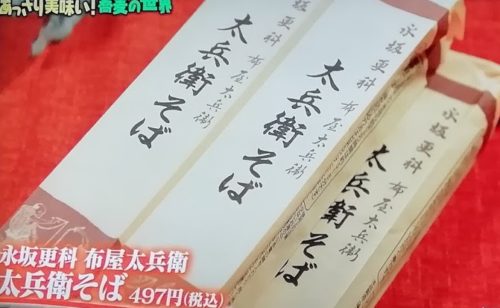 あっさり美味い!蕎麦の世界
永坂更科 布屋太兵衛
太兵衛そば
永坂更科 布屋太兵衛
太兵衛そば
永坂更科 布屋太兵衛
太兵衛そば
永坂更科 布屋太兵衛
太兵衛そば 497円(税込)